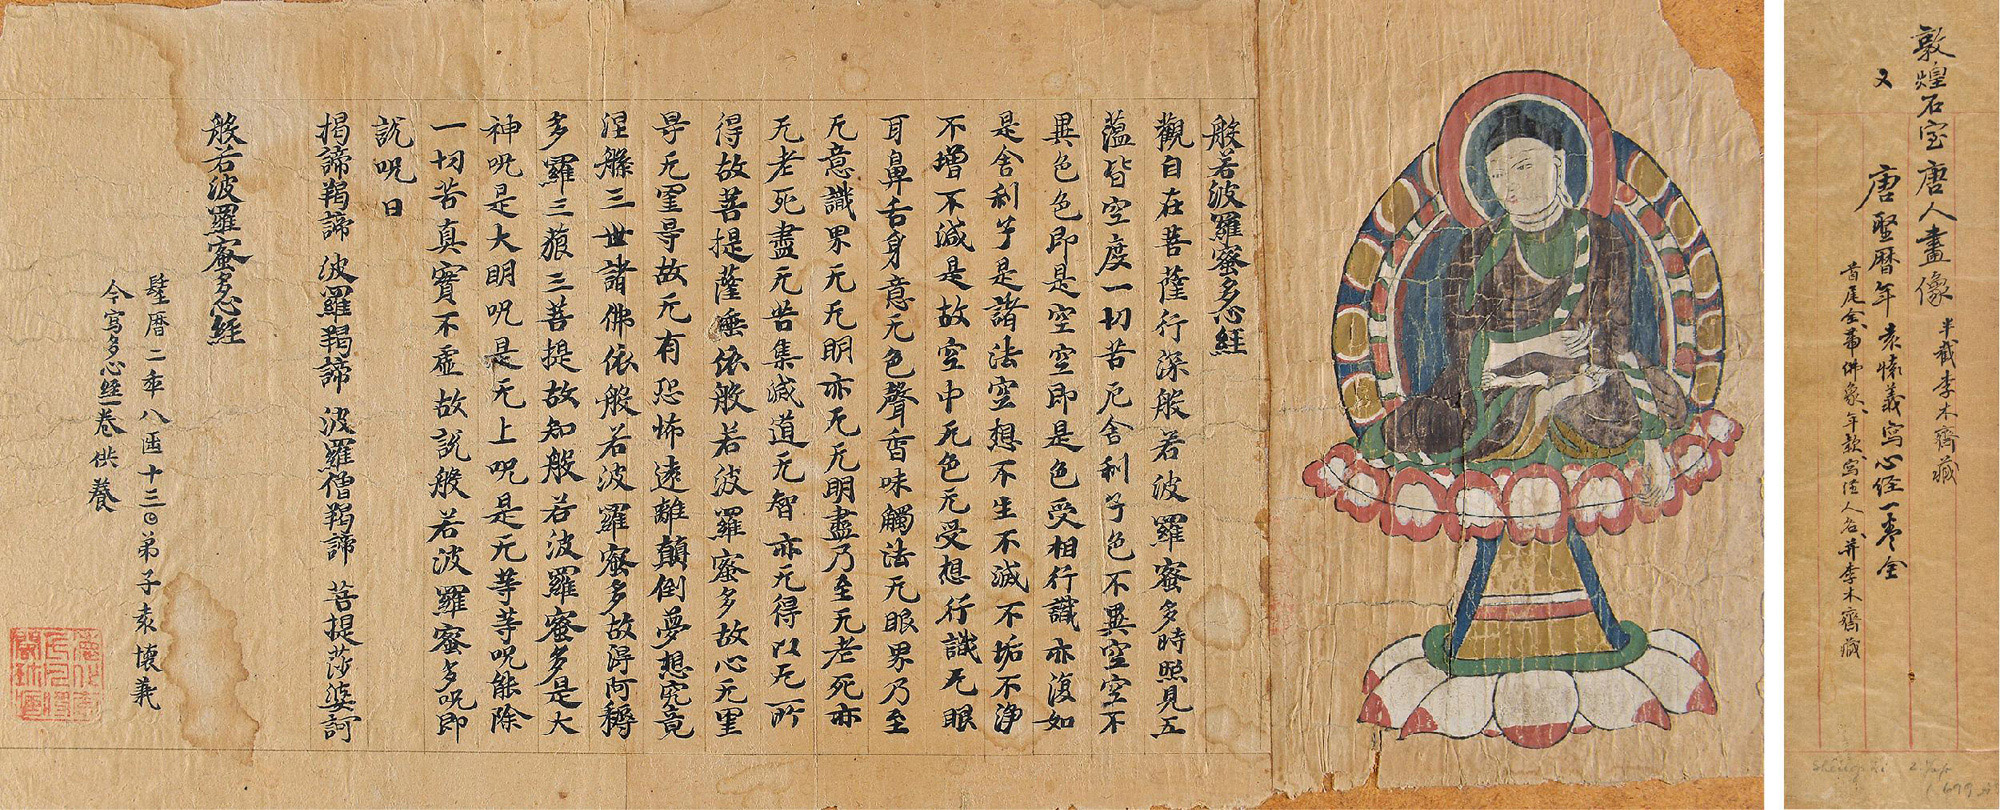 敦煌石室唐人畫像 半截 李木齋藏
又 唐聖曆年袁懷義寫心經一卷全
首尾全、帶佛象、年款、寫經人名、并李木齋藏
般若波羅蜜多心經
觀自在菩薩行深般若波羅蜜多時照見五
蘊皆空度一切苦厄舍利子色不異空空不
異色色即是空空即是色受想行識亦復如
是舍利子是諸法空想不生不滅不垢不淨
不增不減是故空中无色无受想行識无眼
耳鼻舌身意无色聲香味觸法无眼界乃至
无意識界无无明亦无无明盡乃至无老死亦
无老死盡无苦集滅道无智亦无得以无所
得故菩提薩埵依般若波羅蜜多故心无罣
导无罣导故无有恐怖遠離顛倒夢想究竟
涅槃三世諸佛依般若波羅蜜多故得阿耨
多羅三藐三菩提故知般若波羅蜜多是大
神呪是大明呪是无上呪是无等等呪能除
一切苦真實不虛故說般若波羅蜜多呪即
說呪曰
揭諦揭諦 波羅揭諦 波羅僧揭諦 菩提莎婆訶
般若波羅蜜多心經
曆二年八
十三
弟子袁懷義
今寫多心經一卷供養